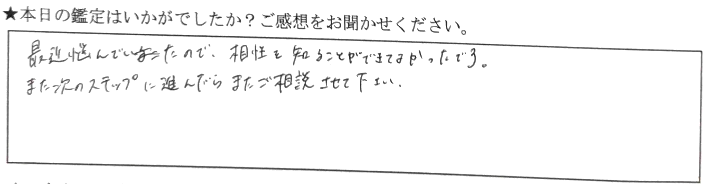 ★本日の鑑定はいかがでしたか？ご感想をお聞かせください。
最近悩んでいたので、相性を知ることができてよかったです。
また次のステップに進んだらまたご相談させて下さい.